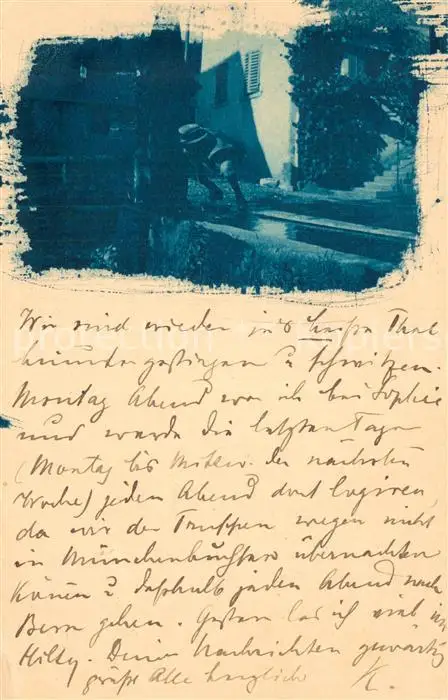 Wir sind wieder ins heisse Thal
hinunter gestiegen u schwitzen.
Montag Abend war ich bei Sophie
und werde die letzten Tage
(Montag bis Mittw. der nächsten
Woche) jeden Abend dort logiren,
da wir der Truppen wegen nicht
in Münchenbuchsee übernachten
können u deshalb jeden Abend nach
Bern gehen. Gestern las ich viel in
Hilty. Deiner Nachrichten gewärtig
grüße Alle herzlich K.